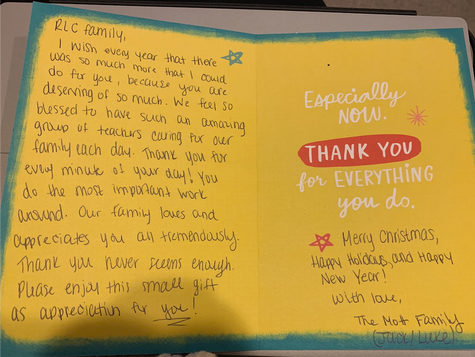 RLC family,
I wish every year that there
was so much more that I could
do for you, because you are
deserving of so much. We feel so
blessed to have such an amazing
group of teachers caring for our
family each day. Thank you for
every minute of your day! You
do the most important work
around. Our family loves and
appreciates you all tremendously.
Thank you never seems enough.
Please enjoy this small gift
as appreciation for you!
Especially
NOW.
THANK YOU
for EVERYTHING
you do.
Merry Christmas,
Happy Holidays, and Happy
New Year!
With love,
The Mott Family
(Jack/Luke)